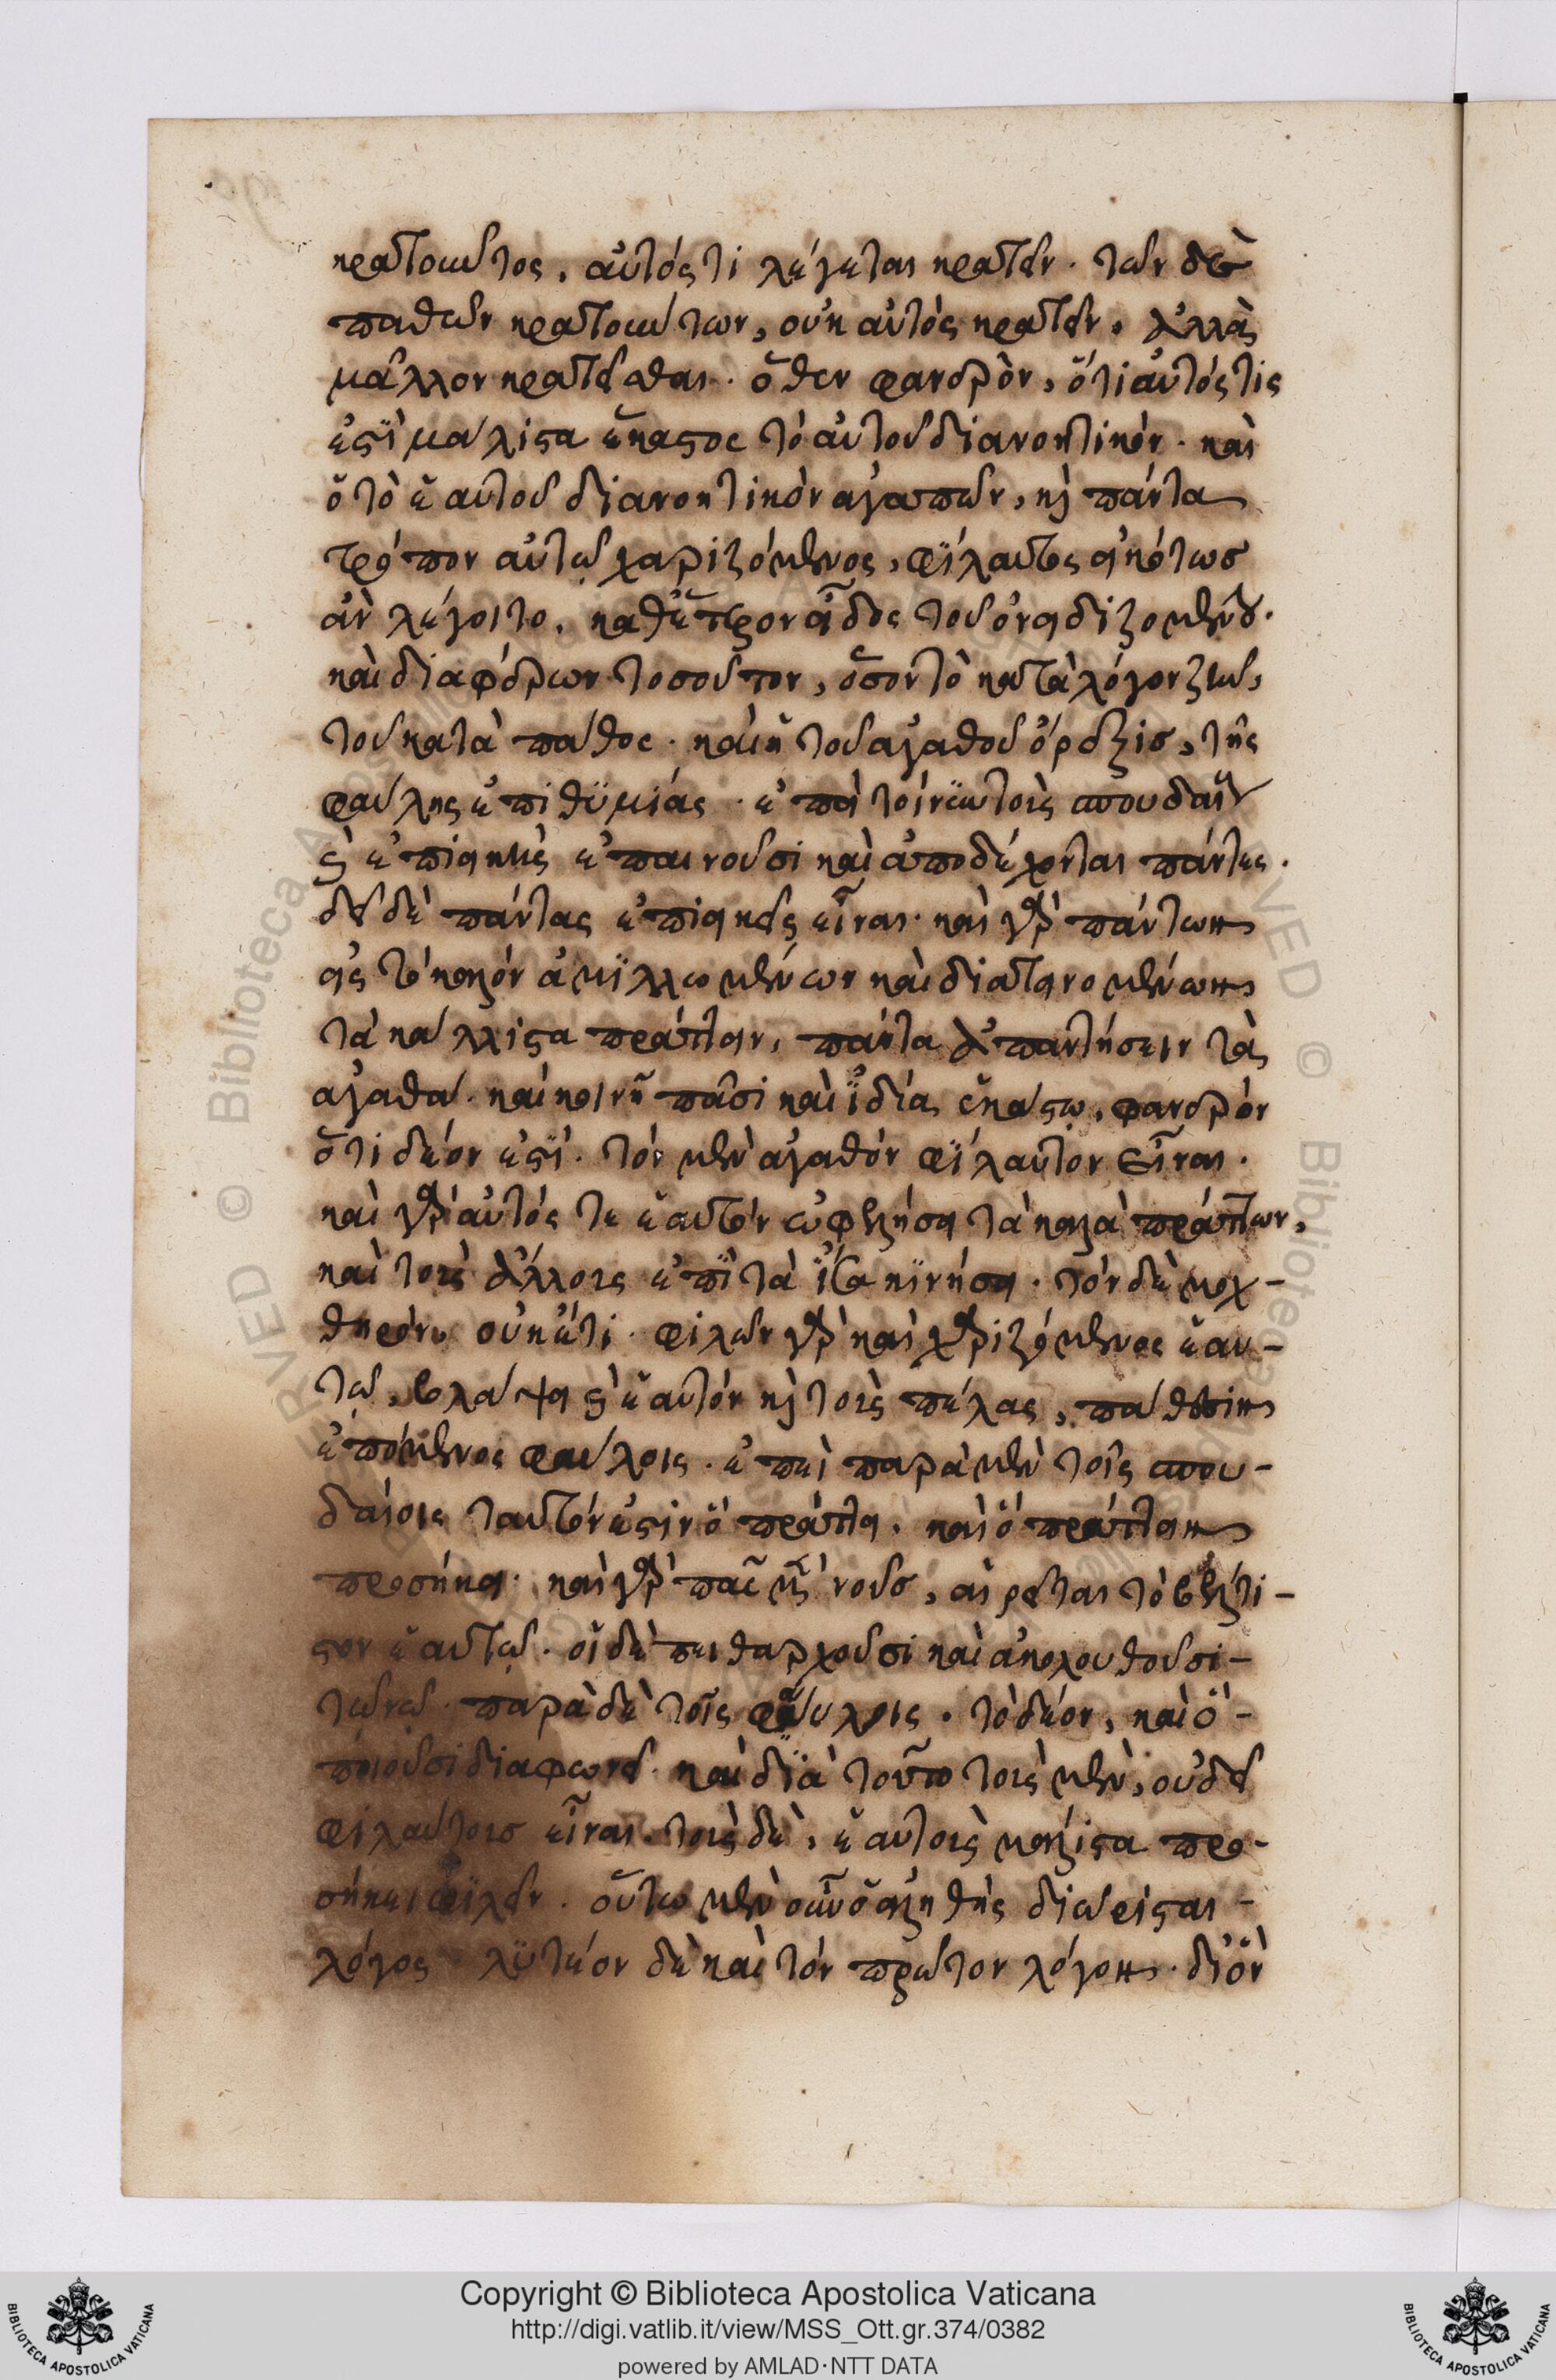 κρατοῦντος, αὐτός τι λέγεται κρατεῖν. τῶν δὲ
παθῶν κρατούντων, οὐκ αὐτὸς κρατεῖν, ἀλλὰ
μᾶλλον κρατεῖσθαι. ὅθεν φανερὸν, ὅτι αὐτός τις
ἐστὶ μάλιστα ἕκαστος τὸ αὐτοῦ διανοητικόν. καὶ
ὁ τὸ ἑαυτοῦ διανοητικὸν ἀγαπῶν, κὶ πάντα
τρόπον αὐτῷ χαριζόμενος, φίλαυτος εἰκότως
ἂν λέγοιτο, καθ' ἕτερον εἶδος τοῦ ὀνειδιζομένου.
καὶ διαφέρων τοσοῦτον, ὅσον τὸ κατὰ λόγον ζῆν,
τοῦ κατὰ πάθος. καὶ ἡ τοῦ ἀγαθοῦ ὄρεξισ, τῆς
φαύλης ἐπιθυμίας. ἐπεὶ τοίνυν τοὺς σπουδαί
ς κὶ ἐπιεικεῖς ἐπαινοῦσι καὶ ἀποδέχονται πάντες.
δεῖ δὲ πάντας ἐπιεικεῖς εἶναι. καὶ γὰρ πάντων
εἰς τὸ καλὸν ἁμιλλωμένων καὶ διατεινομένων
τὰ κάλλιστα πράττειν, πάντα ἀπαντήσειν τὰ
ἀγαθὰ. καὶ κοινῆ πᾶσι καὶ ἰδία ἑκάστῳ, φανερόν
ὅτι δέον ἐστὶ. τὸν μὲν ἀγαθόν φίλαυτον εἶναι.
καὶ γὰρ αὐτός τε ἑαυτὸν ὠφελήσει τὰ καλὰ πράττων,
καὶ τοὺς ἄλλους ἐπὶ τὰ ἴσα κινήσει. τὸν δὲ μοχ-
θηρόν, οὐκέτι. φιλῶν γὰρ καὶ χαριζόμενος ἑαυ-
τῷ, βλάψει κὶ ἑαυτόν κὶ τοὺς πέλας, πάθεσιν
ἑπόμενος φαύλοις. ἐπεὶ παρὰ μὲν τοῖς σπου-
δαίοις ταυτόν ἐστιν ὃ πράττει, καὶ ὃ πράττειν
προσήκει. καὶ γὰρ πᾶς μὲν νοῦσ, αἱρεῖται τὸ βέλτι-
στον ἑαυτῷ. οἱ δὲ πειθαρχοῦσι καὶ ἀκολουθοῦσι-
τῷ νῷ. παρὰ δὲ τοῖς φαύλοις. τὸ δέον, καὶ ὃ-
ποιοῦσι διαφωνεῖ. καὶ διὰ τοῦτο τοὺς μὲν, οὐ δεῖ
φιλαύτουσ εἶναι. τοὺς δὲ, ἑαυτοὺς μάλιστα προ-
σήκει φιλεῖν. οὕτω μὲν οὖν ὁ ἀληθὴς διώρισται-
λόγος λυτέον δὲ καὶ τόν πρῶτον λόγον. δι' ὃν
Copyright © Biblioteca Apostolica Vaticana
http://digi.vatlib.it/view/MSS_Ott.gr.374/0382
powered by AMLAD·NTT DATA